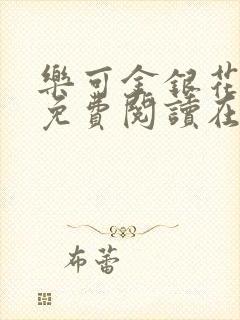 樂可金銀花
免費閱讀在
布蕾